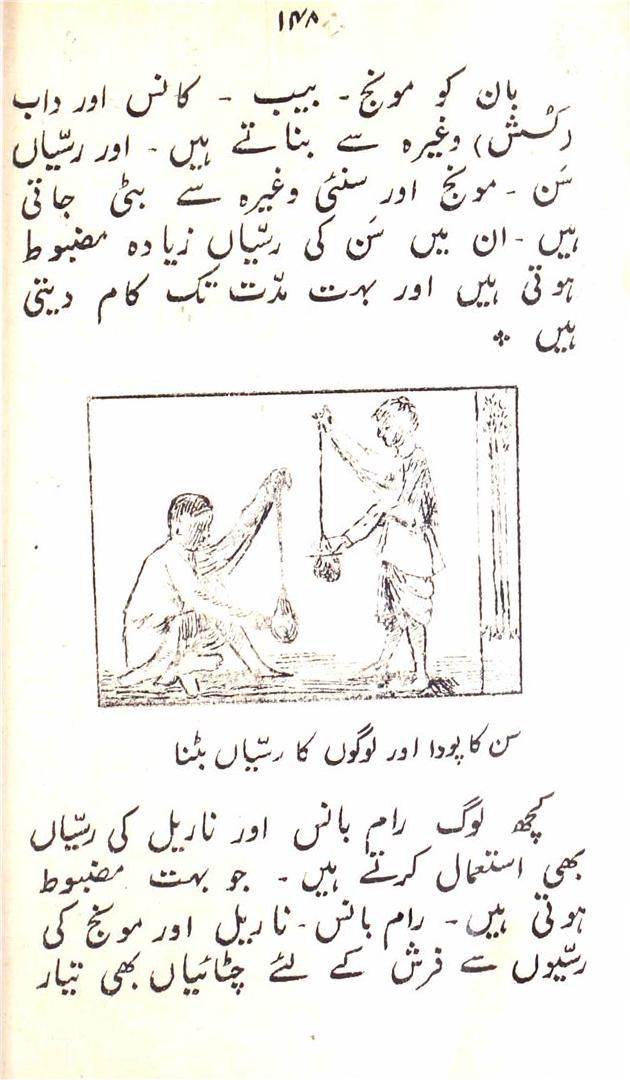 ۱۴۸
بان کو مونج - بیب - کانس اور داب
(کُش) وغیرہ سے بناتے ہیں - اور رسّیاں
سَن - مونج اور سنئی وغیرہ سے بٹی جاتی
ہیں - ان میں سَن کی رسّیاں زیادہ مضبوط
ہوتی ہیں اور بہت مدّت تک کام دیتی
ہیں ❖
سن کا پودا اور لوگوں کا رسّیاں بٹنا
کچھ لوگ رام بانس اور ناریل کی رسّیاں
بھی استعمال کرتے ہیں - جو بہت مضبوط
ہوتی ہیں - رام بانس - ناریل اور مونج کی
رسّیوں سے فرش کے لئے چٹائیاں بھی تیار